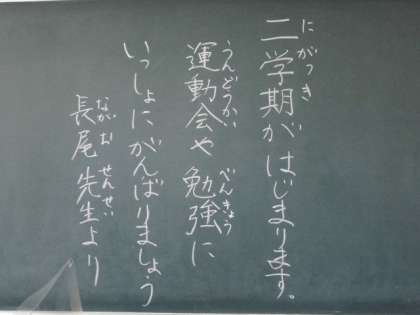 二学期がはじまります。
運動会や勉強に
いっしょにがんばりましょう
長尾先生より
にがっき
うんどうかい
べんきょう
ながお
せんせい